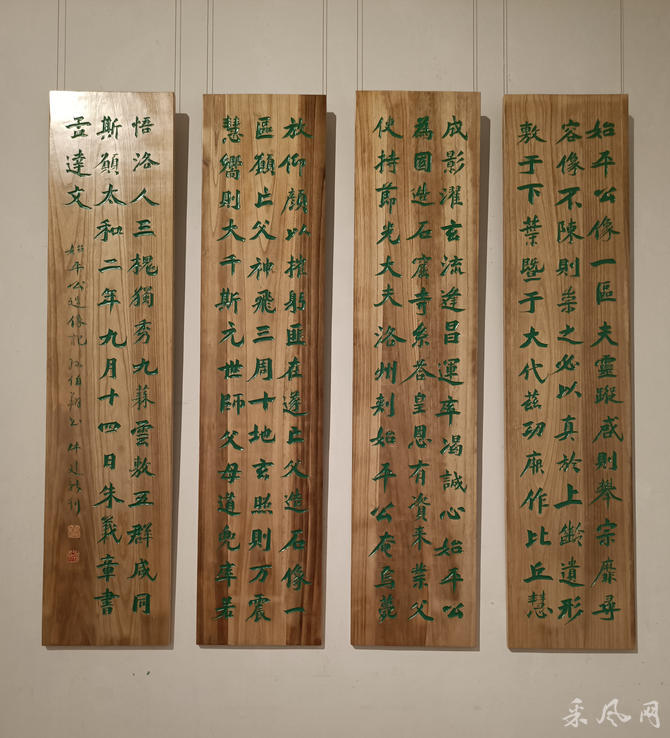 始平公像一區夫靈蹤感則攀宗靡尋
容像不陳則崇之必以真於上齡遺形
敷于下葉暨于大代茲功厥作比丘慧
成影濯玄流逢昌運率渴誠心始平公
為國造石窟寺系荅皇恩有資來業父
使持節光大夫洛州刺始平公奄焉薨
放仰顏以摧躬匪在遂亡父造石像一
區願亡父神飛三周十地玄照則万震
慧嚮則大千斯元世師父母道兜率若
悟洛人三槐獨秀九蕀雲敷五群咸同
斯願太和二年九月十四日朱義章書
孟達文
始平公造像記 孫伯翔書
采风网